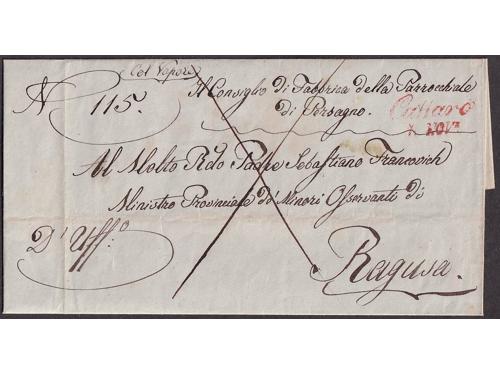 (Col Vapore)
N 115.
Il Consiglio di Fabbrica della Parrocchiale
di Persagno.
Cattaro
NOV.
Al Molto Rdo Padre Sebastiano Francovich
Ministro Provinciale de' Minori Osservanti di
D'Uffo.
Ragusa.